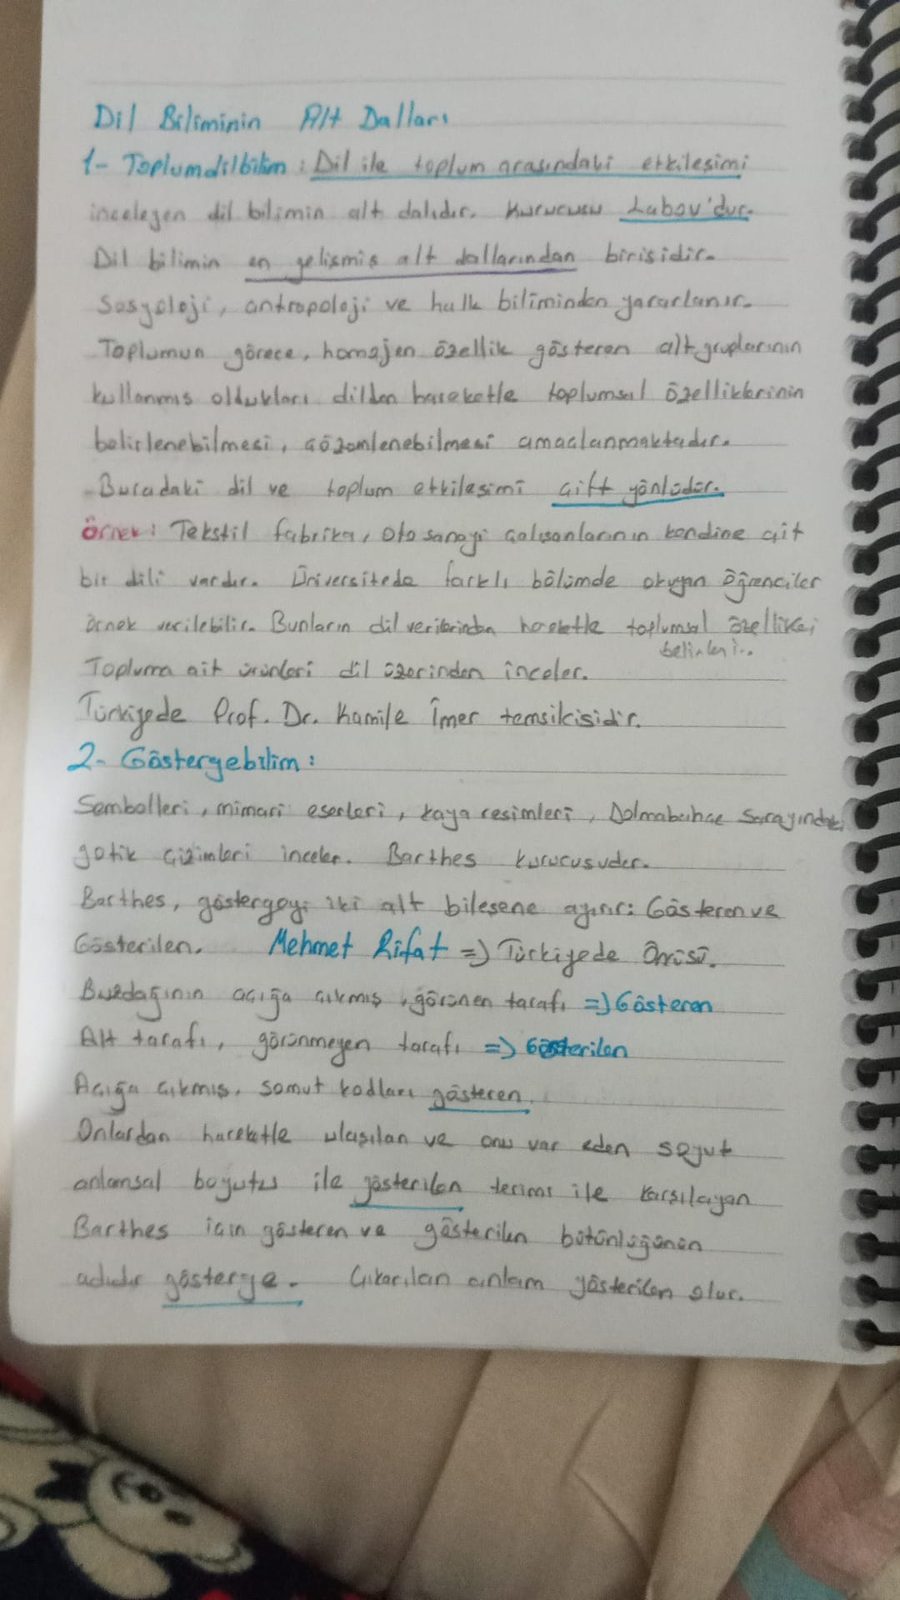 Dil Biliminin Alt Dalları
1- Toplumdilbilim: Dil ile toplum arasındaki etkileşimi
inceleyen dil bilimin alt dalıdır. Kurucusu Labov'dur.
Dil bilimin en gelişmiş alt dallarından birisidir.
Sosyoloji, antropoloji ve halk biliminden yararlanır.
Toplumun görece, homojen özellik gösteren alt gruplarının
kullanmış oldukları dilden hareketle toplumsal özelliklerinin
belirlenebilmesi, çözümlenebilmesi amaçlanmaktadır.
-Buradaki dil ve toplum etkileşimi çift yönlüdür.
Örnek: Tekstil fabrika, oto sanayi çalışanlarının kendine ait
bir dili vardır. Üniversitede farklı bölümde okuyan öğrenciler
örnek verilebilir. Bunların dil verilerinden hareketle toplumsal özellikleri
belirlenir.
Topluma ait ürünleri dil üzerinden inceler.
Türkiyede Prof. Dr. Kamile İmer temsilcisidir.
2- Göstergebilim:
Sembolleri, mimari eserleri, kaya resimleri, Dolmabahçe Sarayındaki
gotik çizimleri inceler. Barthes kurucusudur.
Barthes, göstergeyi iki alt bileşene ayırır: Gösteren ve
Gösterilen. Mehmet Rifat => Türkiyede Öncüsü.
Buzdağının açığa çıkmış, görünen tarafı => Gösteren
Alt tarafı, görünmeyen tarafı => Gösterilen
Açığa çıkmış, somut kodları gösteren,
Onlardan hareketle ulaşılan ve onu var eden soyut
anlamsal boyutu ile gösterilen terimi ile karşılayan
Barthes için gösteren ve gösterilen bütünlüğünün
adıdır gösterge. Çıkarılan anlam gösterilen olur.